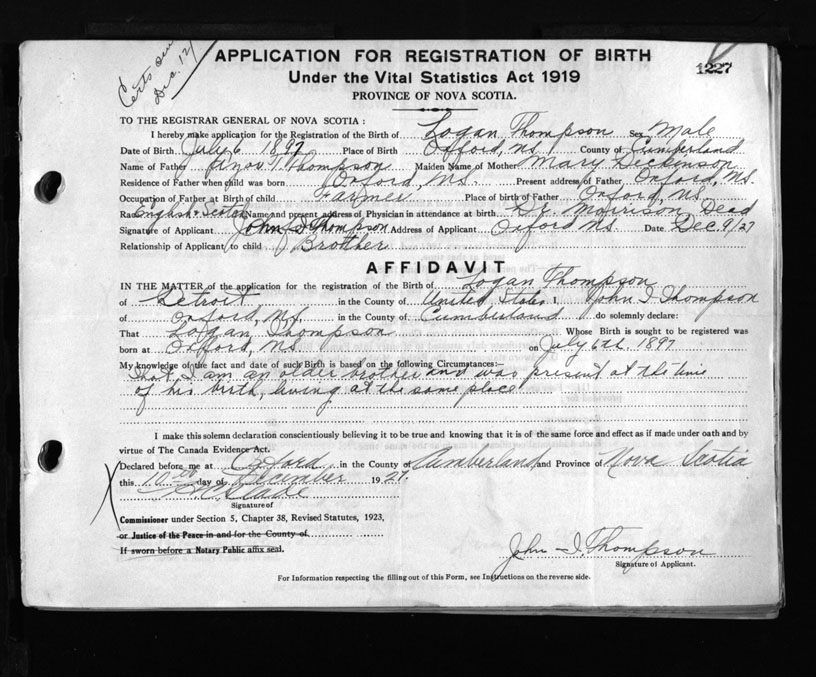 Certs
Dec 12/
APPLICATION FOR REGISTRATION OF BIRTH
1227
Under the Vital Statistics Act 1919
PROVINCE OF NOVA SCOTIA.
TO THE REGISTRAR GENERAL OF NOVA SCOTIA :
I hereby make application for the Registration of the Birth of Logan Thompson Sex Male
Date of Birth July 6 1897 Place of Birth Oxford, NS County of Cumberland
Name of Father Thompson Maiden Name of Mother Mary Dickinson
Residence of Father when child was born Oxford, NS. Present address of Father Oxford, NS.
Occupation of Father at Birth of child Farmer Place of birth of Father Oxford, NS.
English & Scotch Name and present address of Physician in attendance at birth Dr. Morrison Dead
Signature of Applicant John I Thompson Address of Applicant Oxford NS. Date Dec 9/27
Relationship of Applicant to child Brother
AFFIDAVIT
IN THE MATTER of the application for the registration of the Birth of Logan Thompson
of Detroit in the County of United States I, John I Thompson
of Oxford, NS. in the County of Cumberland do solemnly declare:
That Logan Thompson Whose Birth is sought to be registered was
born at Oxford, NS on July 6th 1897
My knowledge of the fact and date of such Birth is based on the following Circumstances:—
That I am an older brother and was present at the time
of his birth, living at the same place
I make this solemn declaration conscientiously believing it to be true and knowing that it is of the same force and effect as if made under oath and by
virtue of The Canada Evidence Act.
Declared before me at Oxford in the County of Cumberland and Province of Nova Scotia
this 10th day of December 1927.
Signature of
Commissioner under Section 5, Chapter 38, Revised Statutes, 1923,
or Justice of the Peace in and for the County of
If sworn before a Notary Public affix seal.
John I. Thompson
Signature of Applicant.
For Information respecting the filling out of this Form, see Instructions on the reverse side.